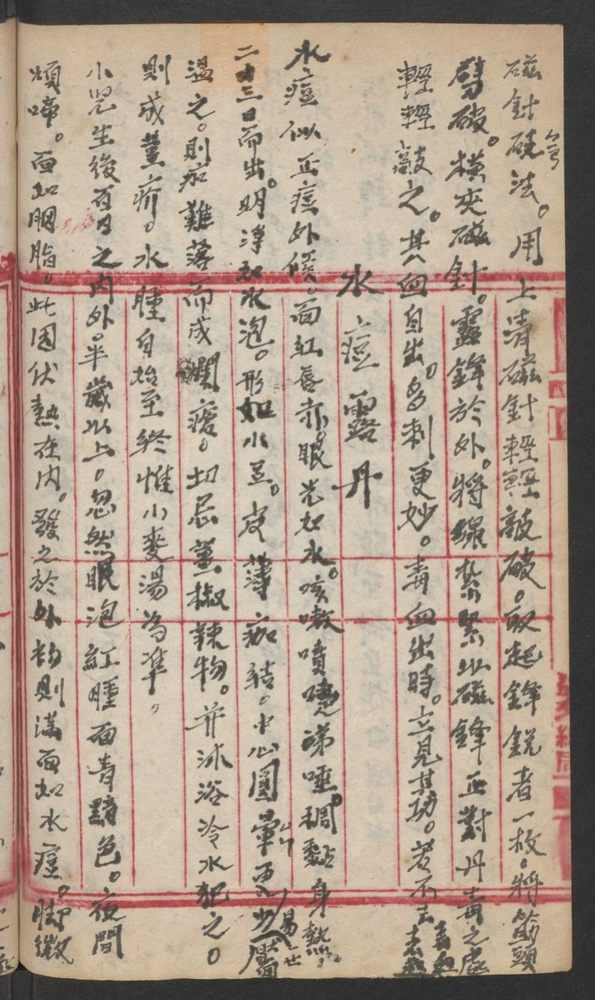 磁針砭法。用上清磁針輕輕敲破。取起鋒銳者一枚。將筯頭
劈破。橫夾磁針。露鋒於外。將線紮緊以磁鋒正對丹毒之處
輕輕敲之。其血自出。多刺更妙。毒血出時。立見其功。若不去毒血
水痘露丹
水痘似正痘外候。面紅唇赤。眼光如水。咳嗽噴嚏涕唾稠黏身熱。
二三日而出。明淨如水泡。形如小豆。皮薄痂結。中心圓暈更少屬
溫之。則痂難落而成爛瘡。切忌薑椒辣物。并沐浴冷水犯之。
則成薑疥。水腫自始至終惟小麥湯為準。
小兒生後百日之內外。半歲以上。忽然眼泡紅腫面青黯色。夜間
煩啼。面如胭脂。此因伏熱在內。發之於外初則滿面如水痘。脚微